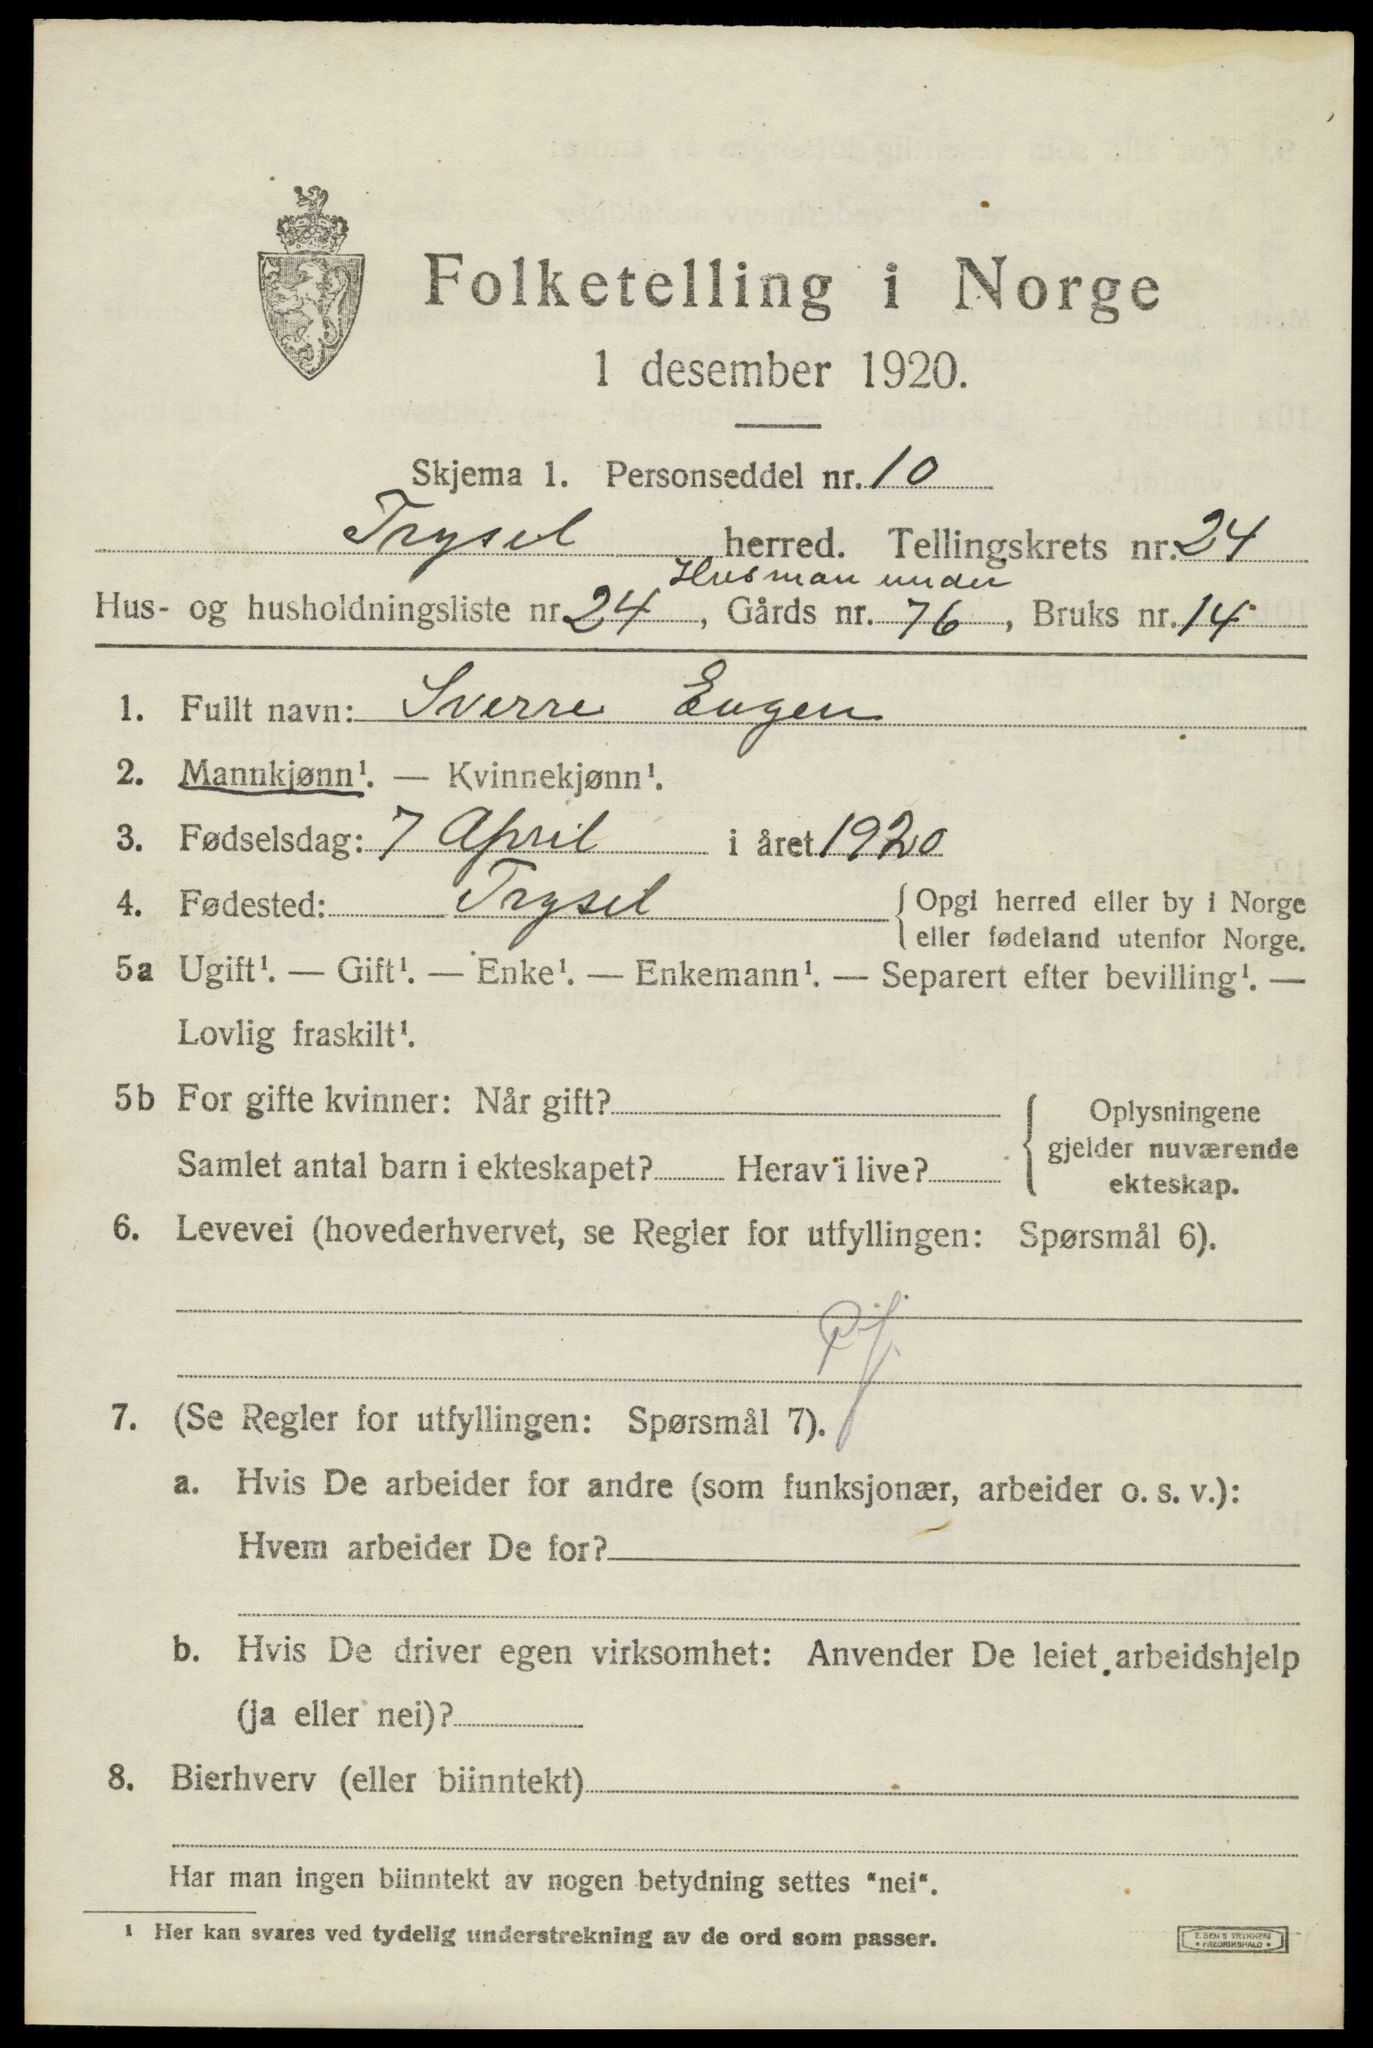 Folketelling i Norge
1 desember 1920.
Skjema 1. Personseddel nr. 10
Trysel herred. Tellingskrets nr. 24
Husman under
Hus- og husholdningsliste nr 24, Gårds nr. 76, Bruks nr. 14
1. Fullt navn: Sverre Eugen
2. Mannkjønn¹. — Kvinnekjønn¹.
3. Fødselsdag: 7 April i året 1920
4. Fødested: Trysel { Opgi herred eller by i Norge
eller fødeland utenfor Norge.
5a Ugift¹. — Gift¹. — Enke¹. — Enkemann¹. — Separert efter bevilling¹. —
Lovlig fraskilt¹.
5b For gifte kvinner: Når gift?
Samlet antal barn i ekteskapet? Herav i live?
{ Oplysningene
gjelder nuværende
ekteskap.
6. Levevei (hovederhvervet, se Regler for utfyllingen: Spørsmål 6).
7. (Se Regler for utfyllingen: Spørsmål 7).
a. Hvis De arbeider for andre (som funksjonær, arbeider o. s. v.):
Hvem arbeider De for?
b. Hvis De driver egen virksomhet: Anvender De leiet arbeidshjelp
(ja eller nei)?
8. Bierhverv (eller biinntekt)
Har man ingen biinntekt av nogen betydning settes "nei".
¹ Her kan svares ved tydelig understrekning av de ord som passer.
E. SEM'S TRYKKERI
• FREDRIKSHALD •